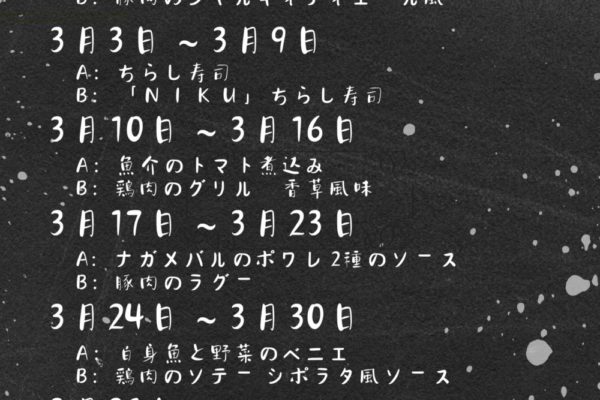 B: 豚肉のシャルキュティエール風
3月3日 ~3月9日
A: ちらし寿司
B: 「NIKU」ちらし寿司
3月10日 ~3月16日
A: 魚介のトマト煮込み
B: 鶏肉のグリル 香草風味
3月17日 ~3月23日
A: ナガメバルのポワレ 2種のソース
B: 豚肉のラグー
3月24日 ~3月30日
A: 白身魚と野菜のベニエ
B: 鶏肉のソテー シポラタ風ソース